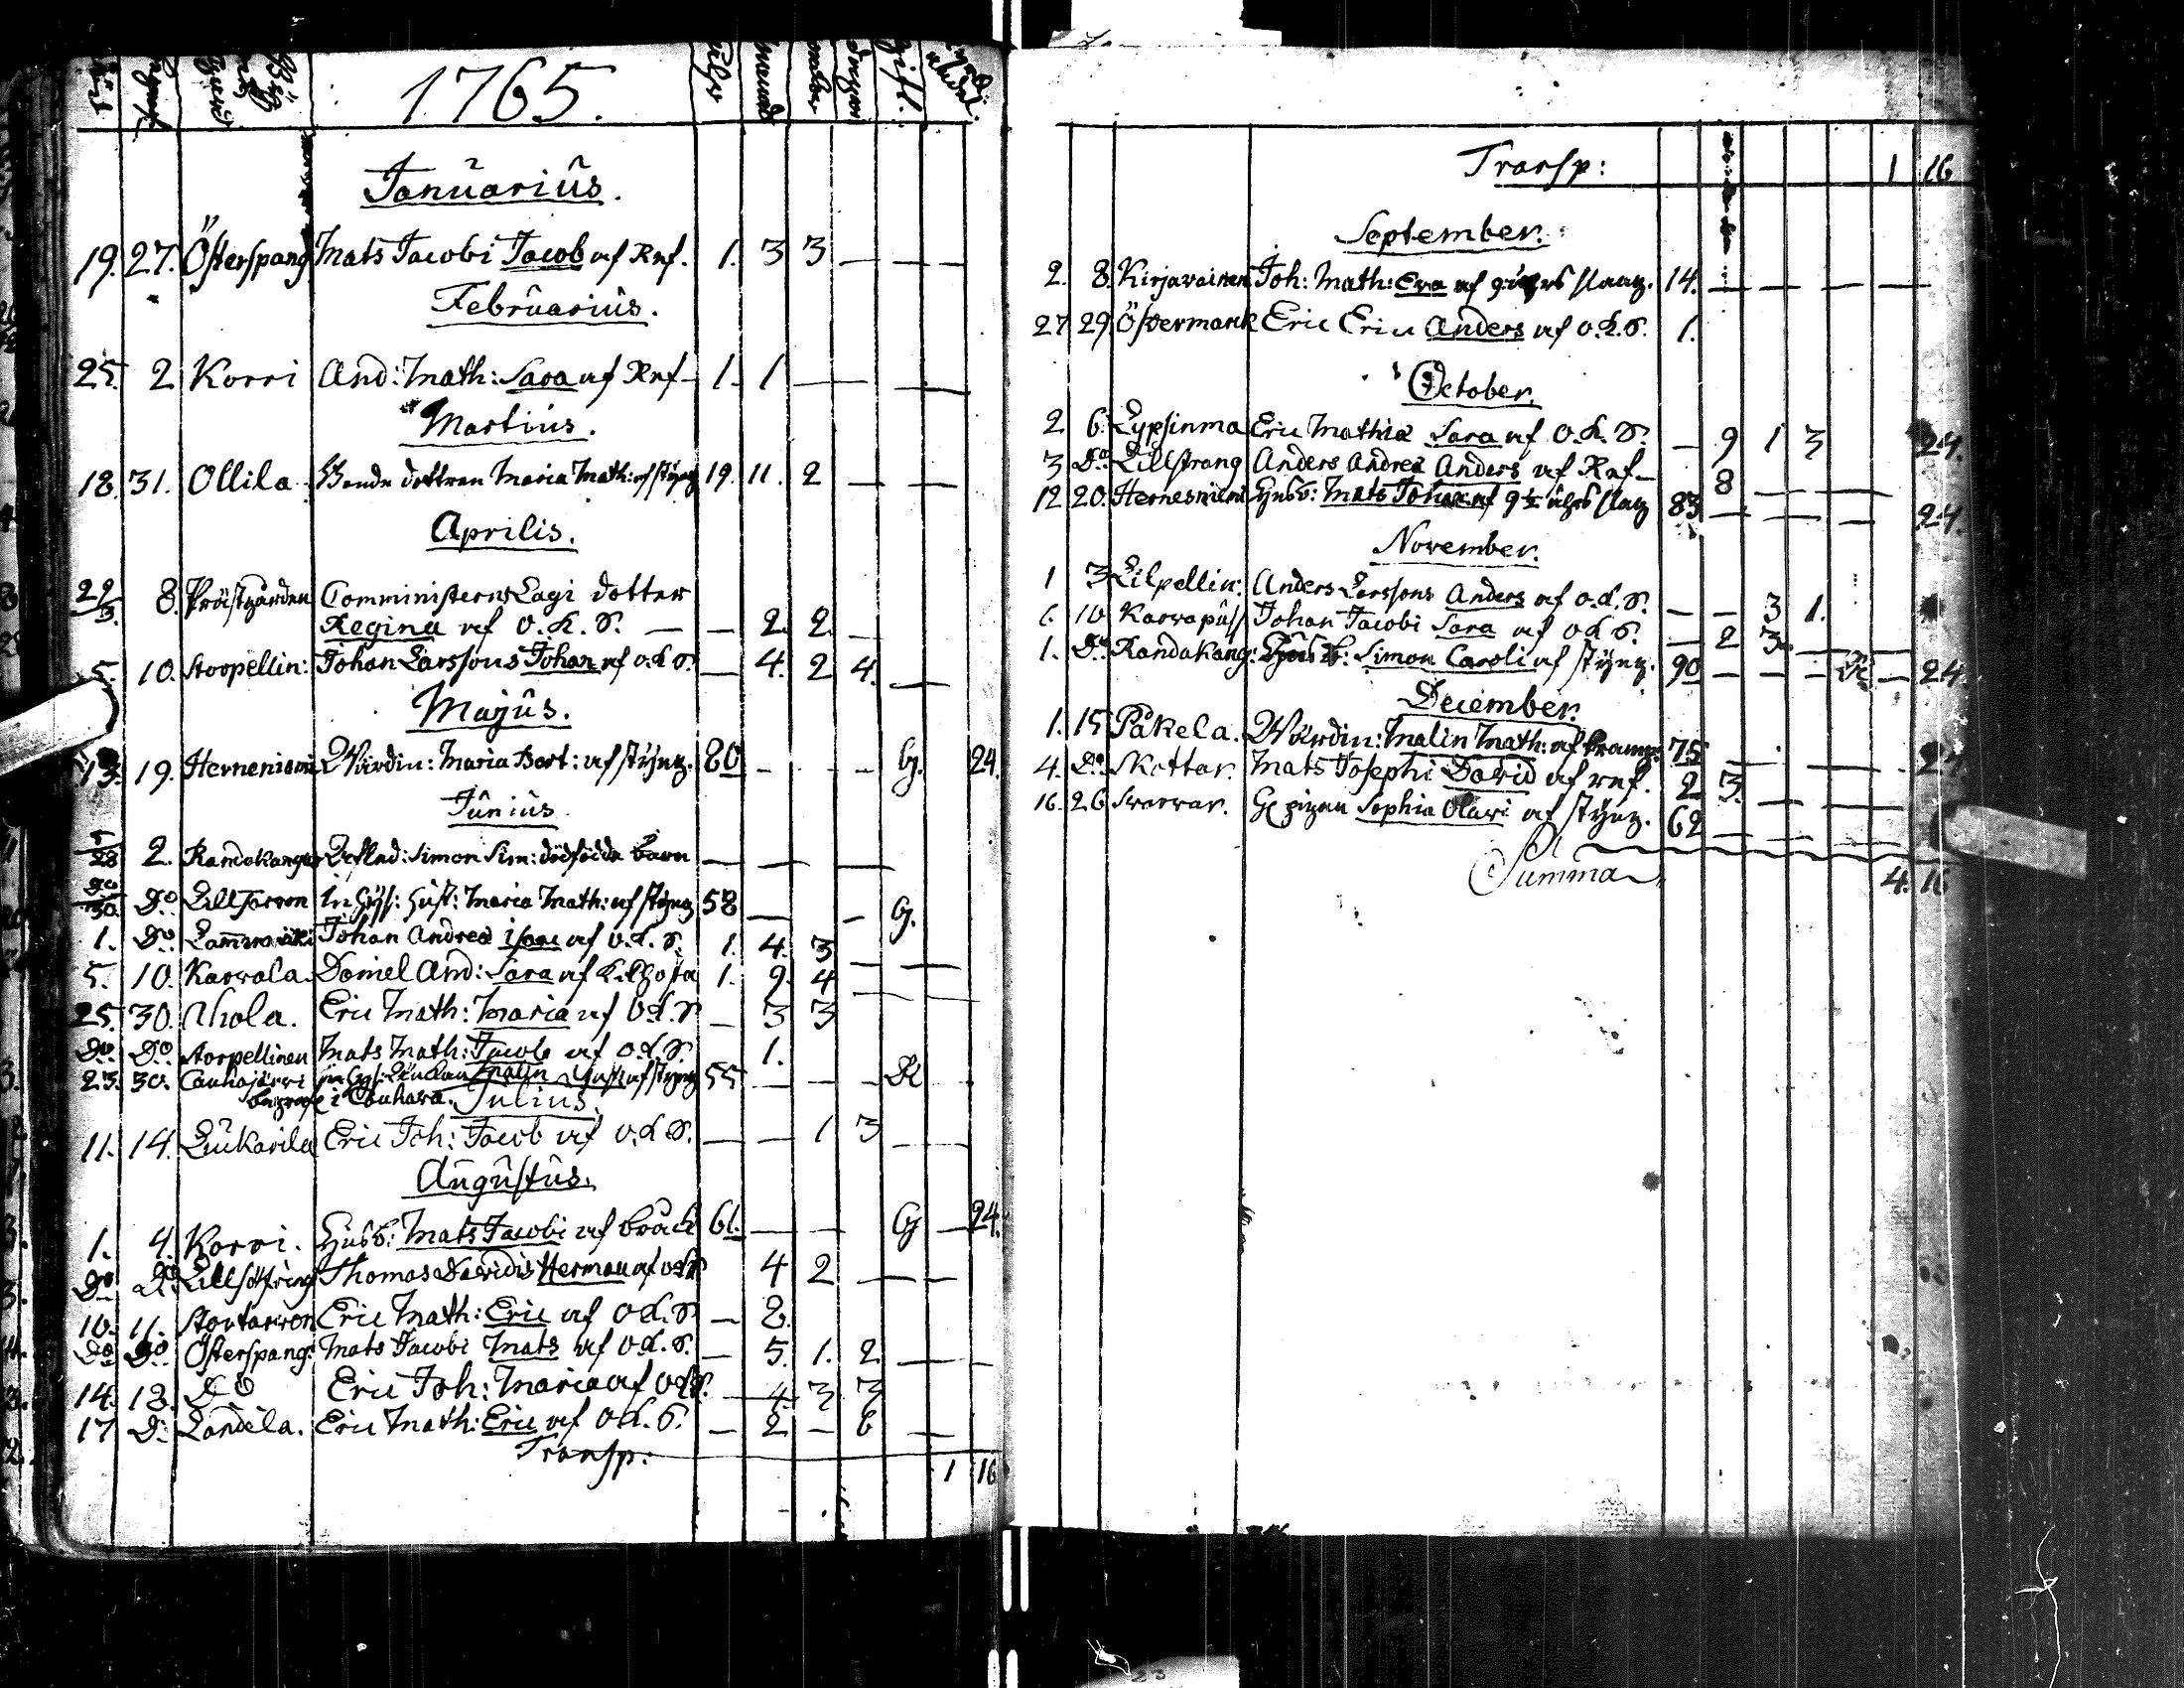 1765.
Januarius.
19. 27. Österspang Mats Jacobi Jacob af Ref. 1. 3 3 — — —
Februarius.
25. 2 Korri And: Math: Sara af Ref— 1. 1 — — — —
Martius.
18. 31. Ollila Bonde dottren Maria Math: af styng 19. 11. 2 — — —
Aprilis.
22/3. 8. Prästgården Comministerns Lagi dotter
Regina af O. K. S. — — 2. 2. —
5. 10. Storpellin: Johan Larssons Johan af o.k.S. — 4. 2 4. —
Majus.
13. 19. Herneniemi Värdin: Maria Bert: af styng. 80 — — — G. 24.
Junius
5/28 2. Randakangas Aflad: Simon Sim: dödfödda barn — — —
Do/30. Do Lilltarvon Inhys: Hust: Maria Math: af styng 58 — — G.
1. Do Johan Andreæ Isaac af o.k.S. 1. 4. 3
5. 10. Karvala Daniel And: Sara af K.Hosta 1. 9. 4 — —
25. 30. Uhola. Eric Math: Maria af O.K.S — 3 3
Do Do Storpellinen Mats Math: Jacob af o.k.S. 1.
23. 30. Cauhajärvi Malin af styng 55 — — — R
i Cauhava. Julius.
11. 14. Luckarila Eric Joh: Jacob af o.k.S. — — 1 3 — —
Augustus.
1. 4. Korri. Husb: Mats Jacobi af bråck 61. — — G — 24.
Do Do Thomas Davidis Herman af okS 4 2 — —
10. 11. Stortarvon Eric Math: Eric af O.K.S — 2.
Do Do Österspang: Mats Jacobi Mats af O.K.S. — 5. 1. 2. — —
14. 18. Do Eric Joh: Maria af okS. — 4. 3 3
17 D: Landela. Eric Math: Eric af O.K.S. — 2 — 6 —
Transp: 1 16
Transp: 1 16
September.
2. 8. Kirjavainen Joh: Math: Eva af slaag. 14. — — — —
27 29. Östermark Eric Erici Anders af o.k.S. 1.
October.
2 6. Lypsinma Eric Mathiæ Sara af O.K.S. — 9 1 3 24.
3 Do Lillstrang Anders Andreæ Anders af Ref— 8 — — —
12 20. Hernesniemi Husb: Mats Johan af 9½ åhrs slag 83 — — — 24.
November.
1 3 Lilpellin: Anders Larssons Anders af o.k.S. — — 3 1.
6. 10 Karvapuss Johan Jacobi Sara af okS. — 2 3 — —
1. Do Randakang: Simon Caroli af styng. 90 — — — R — 24
December.
1. 15 Påkela. Värdin: Malin Math: af kramp 75 — — — 24
4. Do Skottar. Mats Josephi David af ref. 2 3. — — —
16. 26 Svarvar. Gl pigan Sophia Olavi af styng. 62 — — —
Summa 4. 16